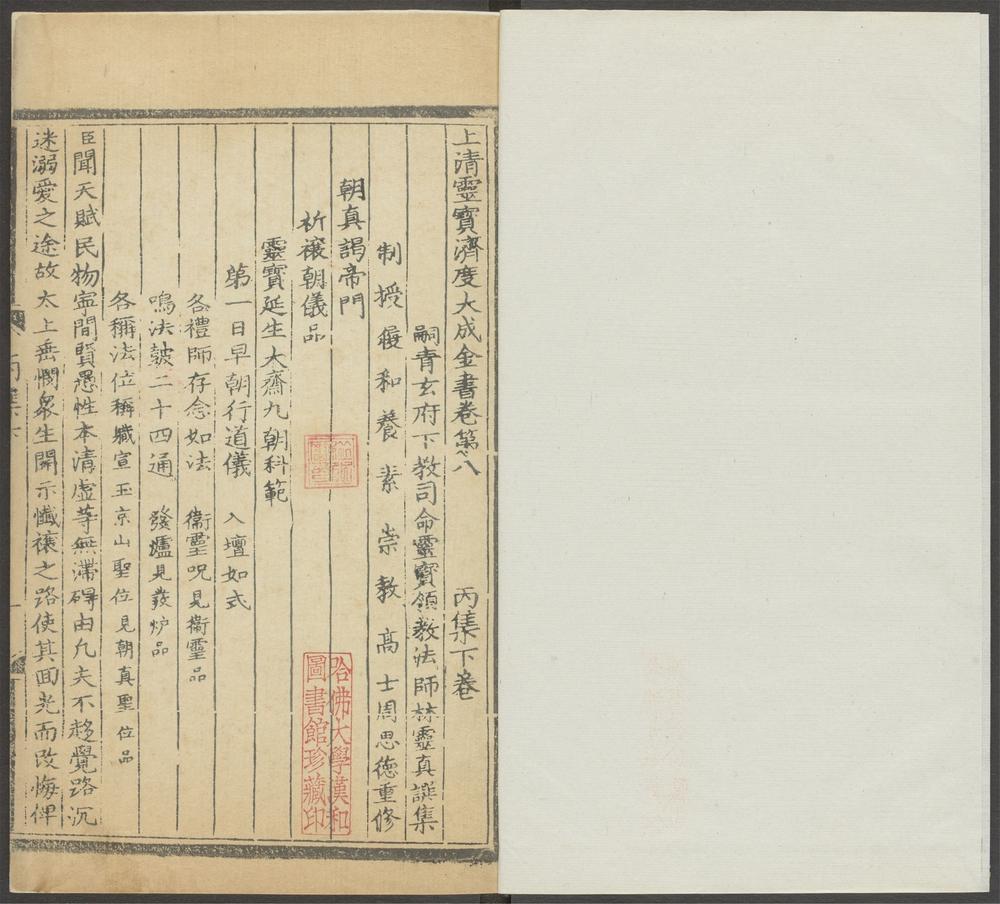 上清靈寶濟度大成金書卷第八 丙集下卷
嗣青玄府下教司命靈寶領教法師林靈真譔集
制授履和養素崇教高士周思德重修
朝真謁帝門
祈禳朝儀品
靈寶延生大齋九朝科範
第一日早朝行道儀 入壇如式
各禮師存念如法 衛靈呪見衛靈品
鳴法皷二十四通 發爐見發炉品
各稱法位稱職宣玉京山聖位見朝真聖位品
臣聞天賦民物宇間賢愚性本清虛等無滯碍由凢夫不趂覺路沉
迷溺愛之途故太上垂憫衆生開示懺禳之路使其囬光而改悔俾
哈佛大學漢和
圖書館珍藏印